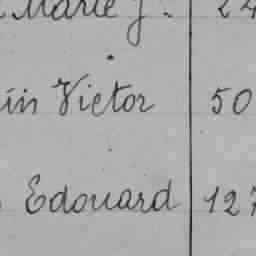 Marie J. 24
in Victor 50
Edouard 127